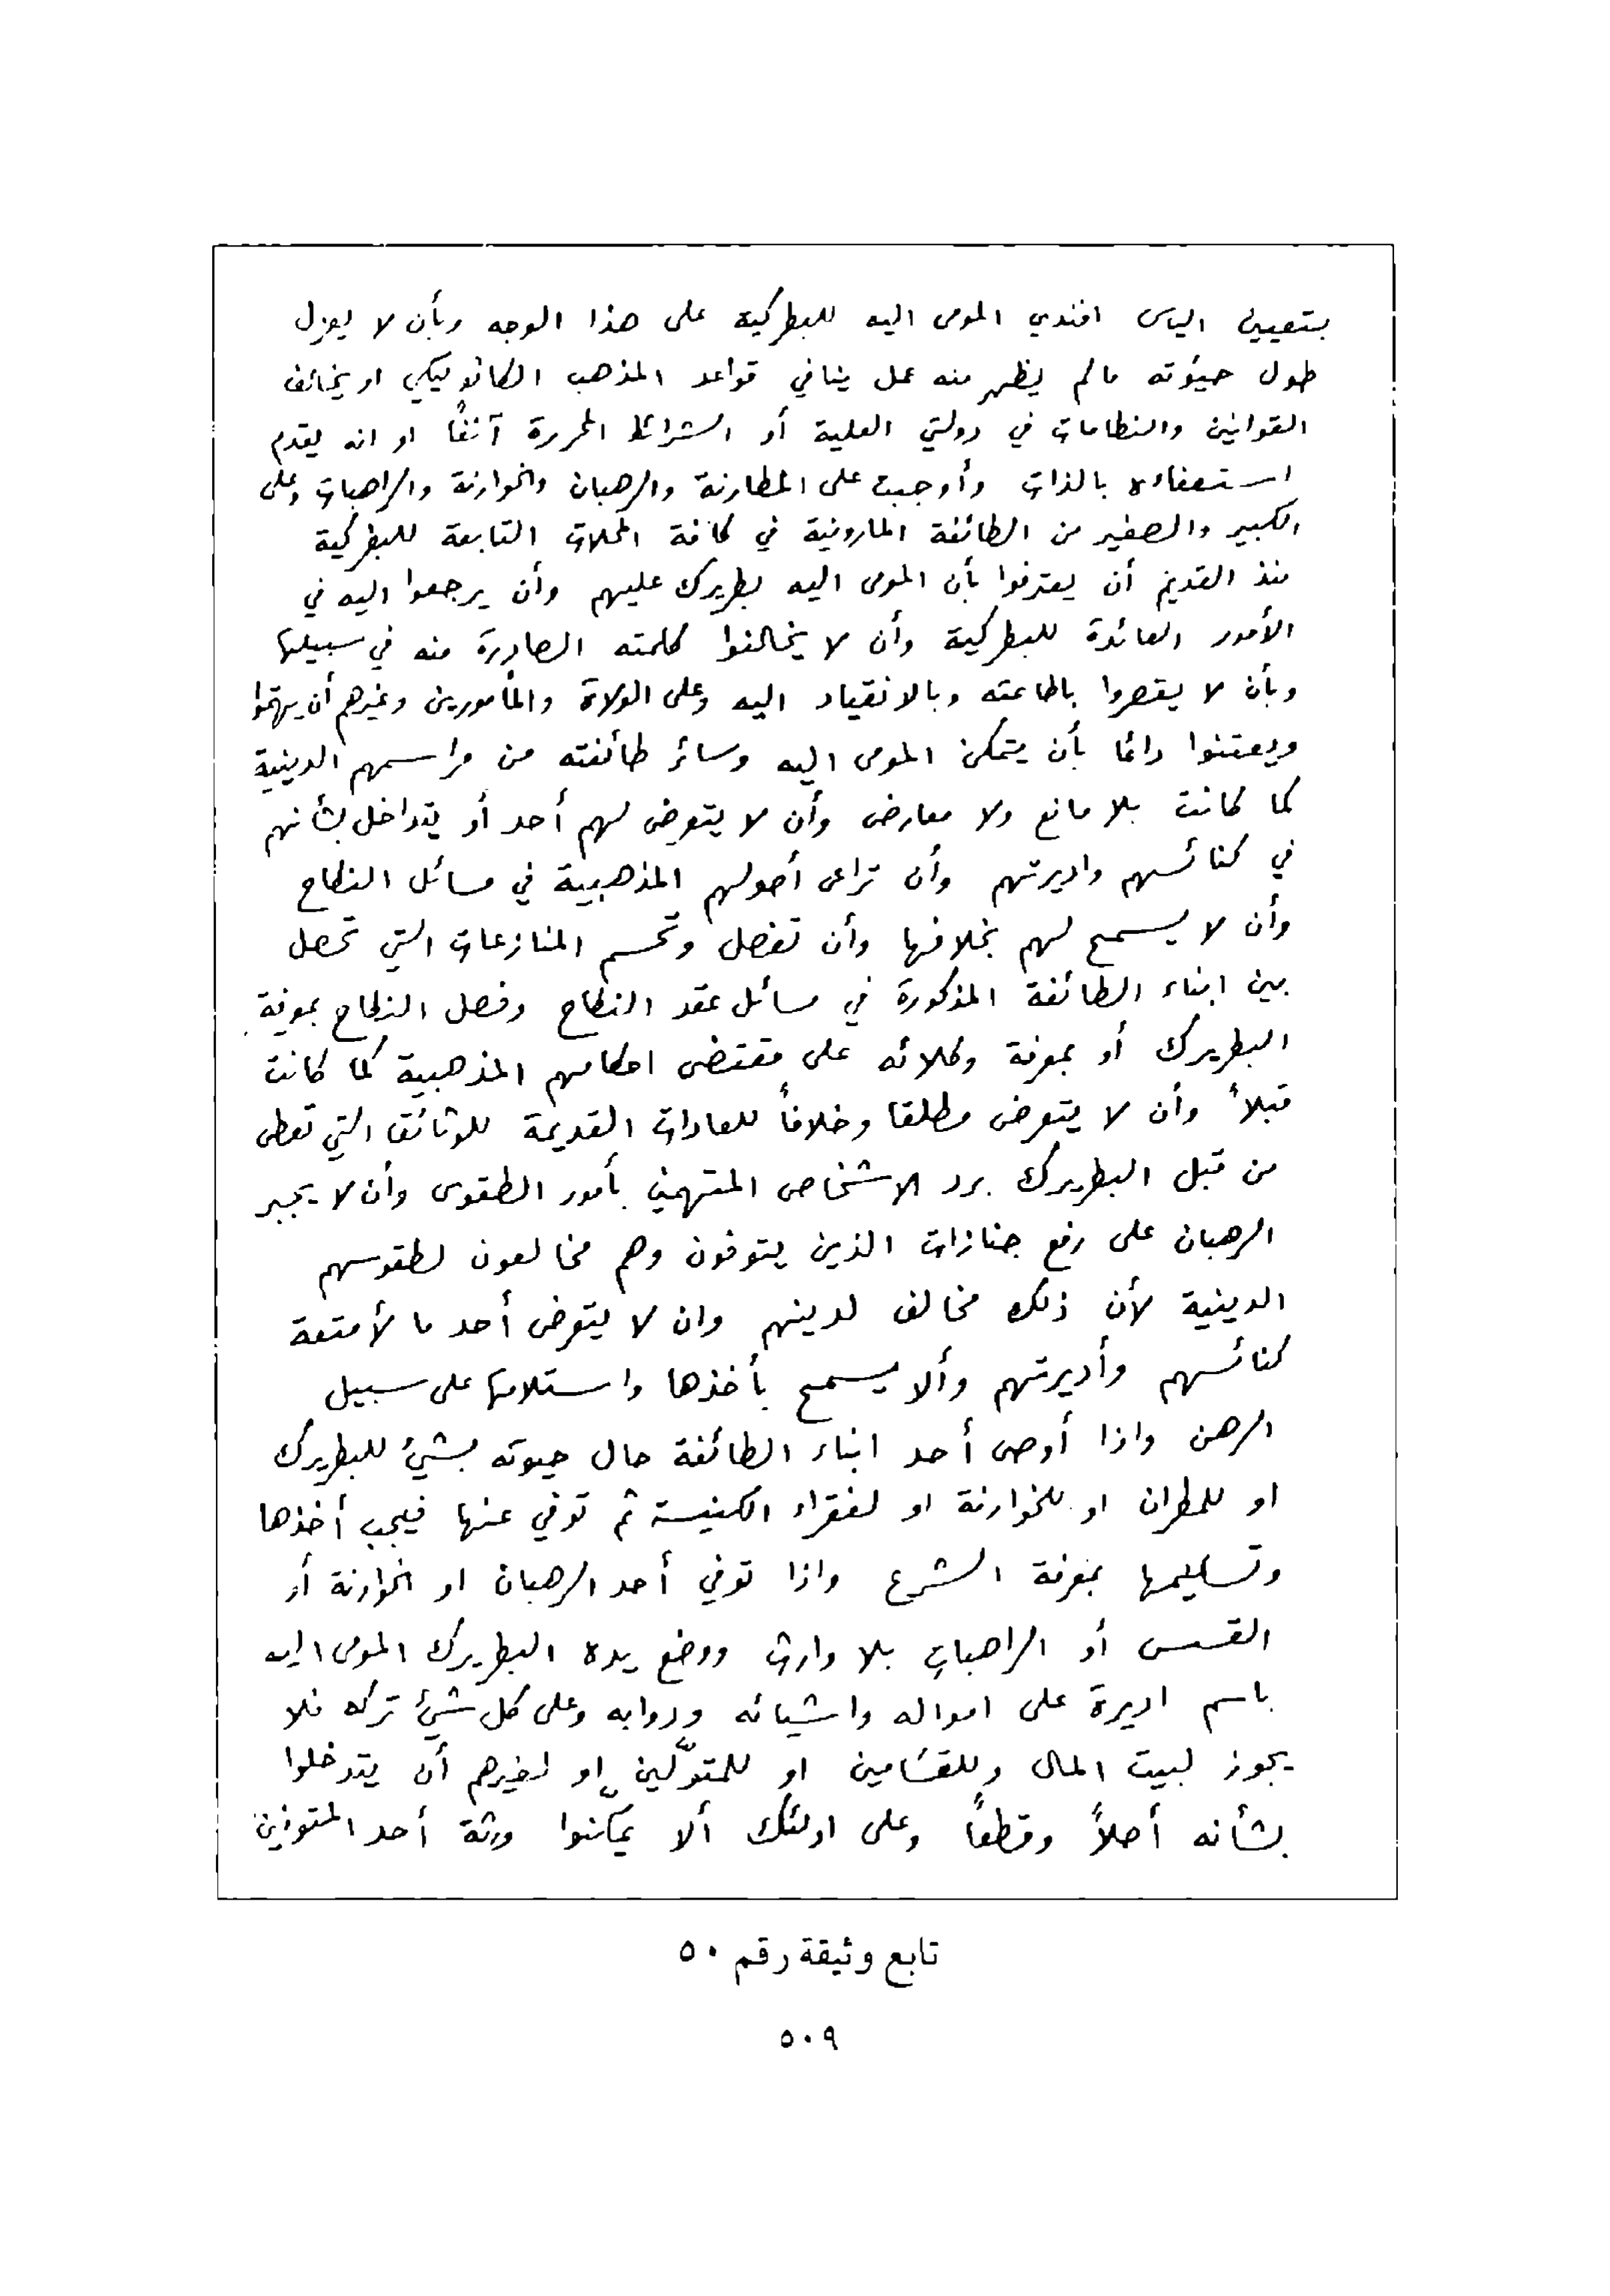 بتعيين الياس افندي المومى اليه للبطركية على هذا الوجه وبأن لا يعزل
طول حيوٰته مالم يظهر منه عمل ينافي قواعد المذهب الكاثوليكي او يخالف
القوانين والنظامات في دولتي العلية أو الشرائط المحررة آنفاً او انه يقدم
استعفاءه بالذات وأوجبت على المطارنة والرهبان والخوارنة والراهبات وعلى
الكبير والصغير من الطائفة المارونية في كافة المحلات التابعة للبطركية
منذ القديم أن يعترفوا بأن المومى اليه بطريرك عليهم وأن يرجعوا اليه في
الأمور العائدة للبطركية وأن لا يخالفوا كلمته الصادرة منه في سبيلها
وبأن لا يقصروا باطاعته وبالانقياد اليه وعلى الولاة والمأمورين وغيرهم أن يهتموا
ويعتنوا دائما بأن يتمكن المومى اليه وسائر طائفته من مراسمهم الدينية
كما كانت بلا مانع ولا معارض وأن لا يتعرض لهم أحد أو يتداخل بشأنهم
في كنائسهم واديرتهم وأن تراعى أصولهم المذهبية في مسائل النكاح
وأن لا يسمح لهم بخلافها وأن تفصل وتحسم المنازعات التي تحصل
بين ابناء الطائفة المذكورة في مسائل عقد النكاح وفصل النكاح بمعرفة
البطريرك أو بمعرفة وكلائه على مقتضى احكامهم المذهبية كما كانت
قبلاً وأن لا يتعرض مطلقا وخلافاً للعادات القديمة للوثائق التي تعطى
من قبل البطريرك برد الاشخاص المتهمين بأمور الطقوس وأن لا يجبر
الرهبان على رفع جنازات الذين يتوفون وهم مخالفون لطقوسهم
الدينية لأن ذلك مخالف لدينهم وان لا يتعرض أحد ما لأمتعة
كنائسهم وأديرتهم وألا يسمح بأخذها واستلامها على سبيل
الرهن واذا أوصى أحد ابناء الطائفة حال حيوته بشيء للبطريرك
او للمطران او للخوارنة او لفقراء الكنيسة ثم توفي عنها فيجب أخذها
وتسليمها بمعرفة الشرع واذا توفي أحد الرهبان او الخوارنة أو
القسس أو الراهبات بلا وارث ووضع يده البطريرك المومى اليه
باسم اديرة على امواله واشيائه ودوابه وعلى كل شيء تركه فلا
يجوز لبيت المال وللقسّامين او للمتولّين او لغيرهم أن يتدخلوا
بشأنه أصلاً وقطعاً وعلى اولئك ألا يمكّنوا ورثة أحد المتوفين
تابع وثيقة رقم ٥٠
٥٠٩